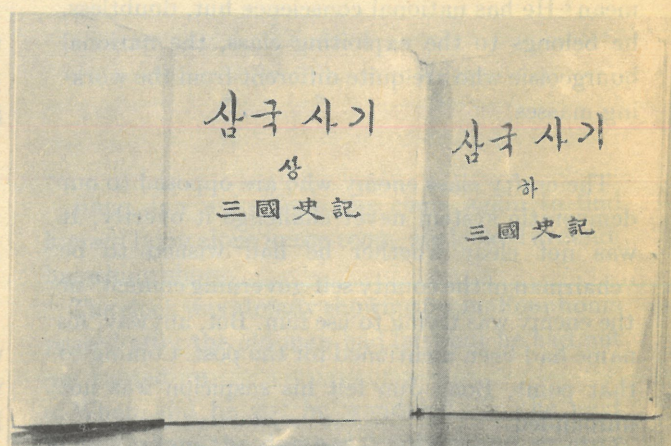 삼국 사기
상
三國史記
삼국 사기
하
三國史記